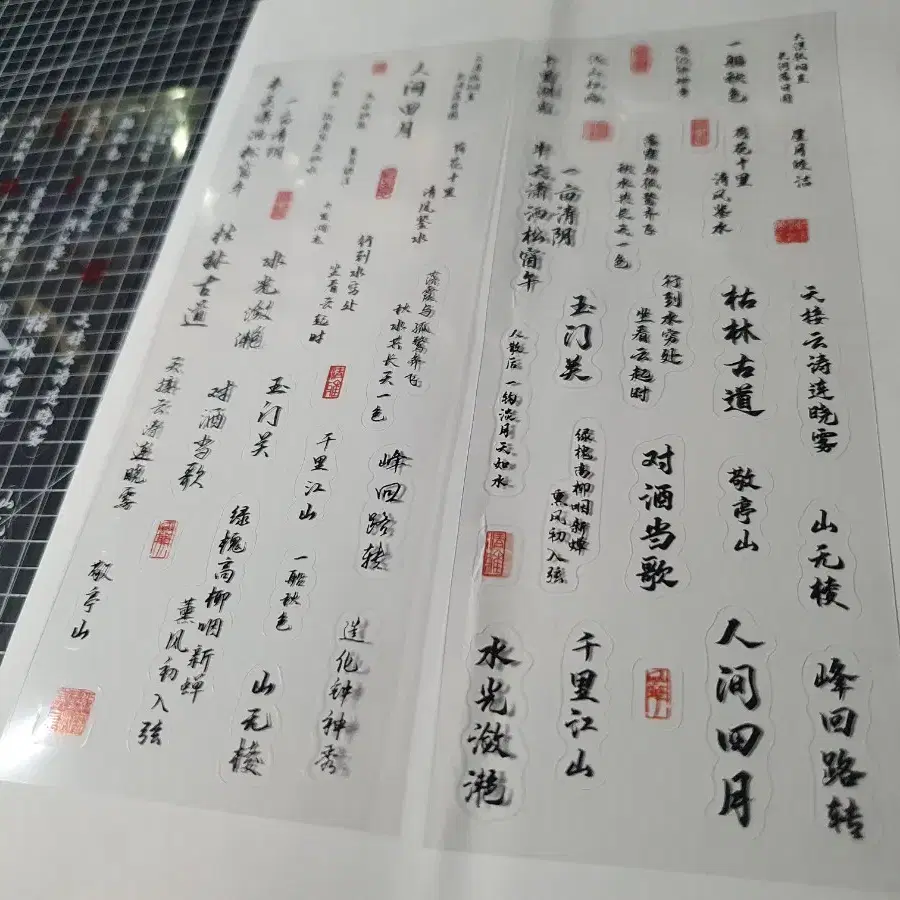 人间四月
一亩清阴
半天潇洒松窗午
荷花十里
清风鉴水
枯林古道
水光潋滟
行到水穷处
坐看云起时
落霞与孤鹜齐飞
秋水共长天一色
天接云涛连晓雾
对酒当歌
玉门关
千里江山
峰回路转
敬亭山
绿槐高柳咽新蝉
薰风初入弦
一船秋色
山无棱
造化钟神秀
大漠孤烟直
长河落日圆
一船秋色
星月皎洁
荷花十里
清风鉴水
落霞与孤鹜齐飞
秋水共长天一色
一亩清阴
半天潇洒松窗午
天接云涛连晓雾
枯林古道
行到水穷处
坐看云起时
玉门关
人散后一钩淡月天如水
山无棱
敬亭山
对酒当歌
绿槐高柳咽新蝉
薰风初入弦
峰回路转
人间四月
千里江山
水光潋滟